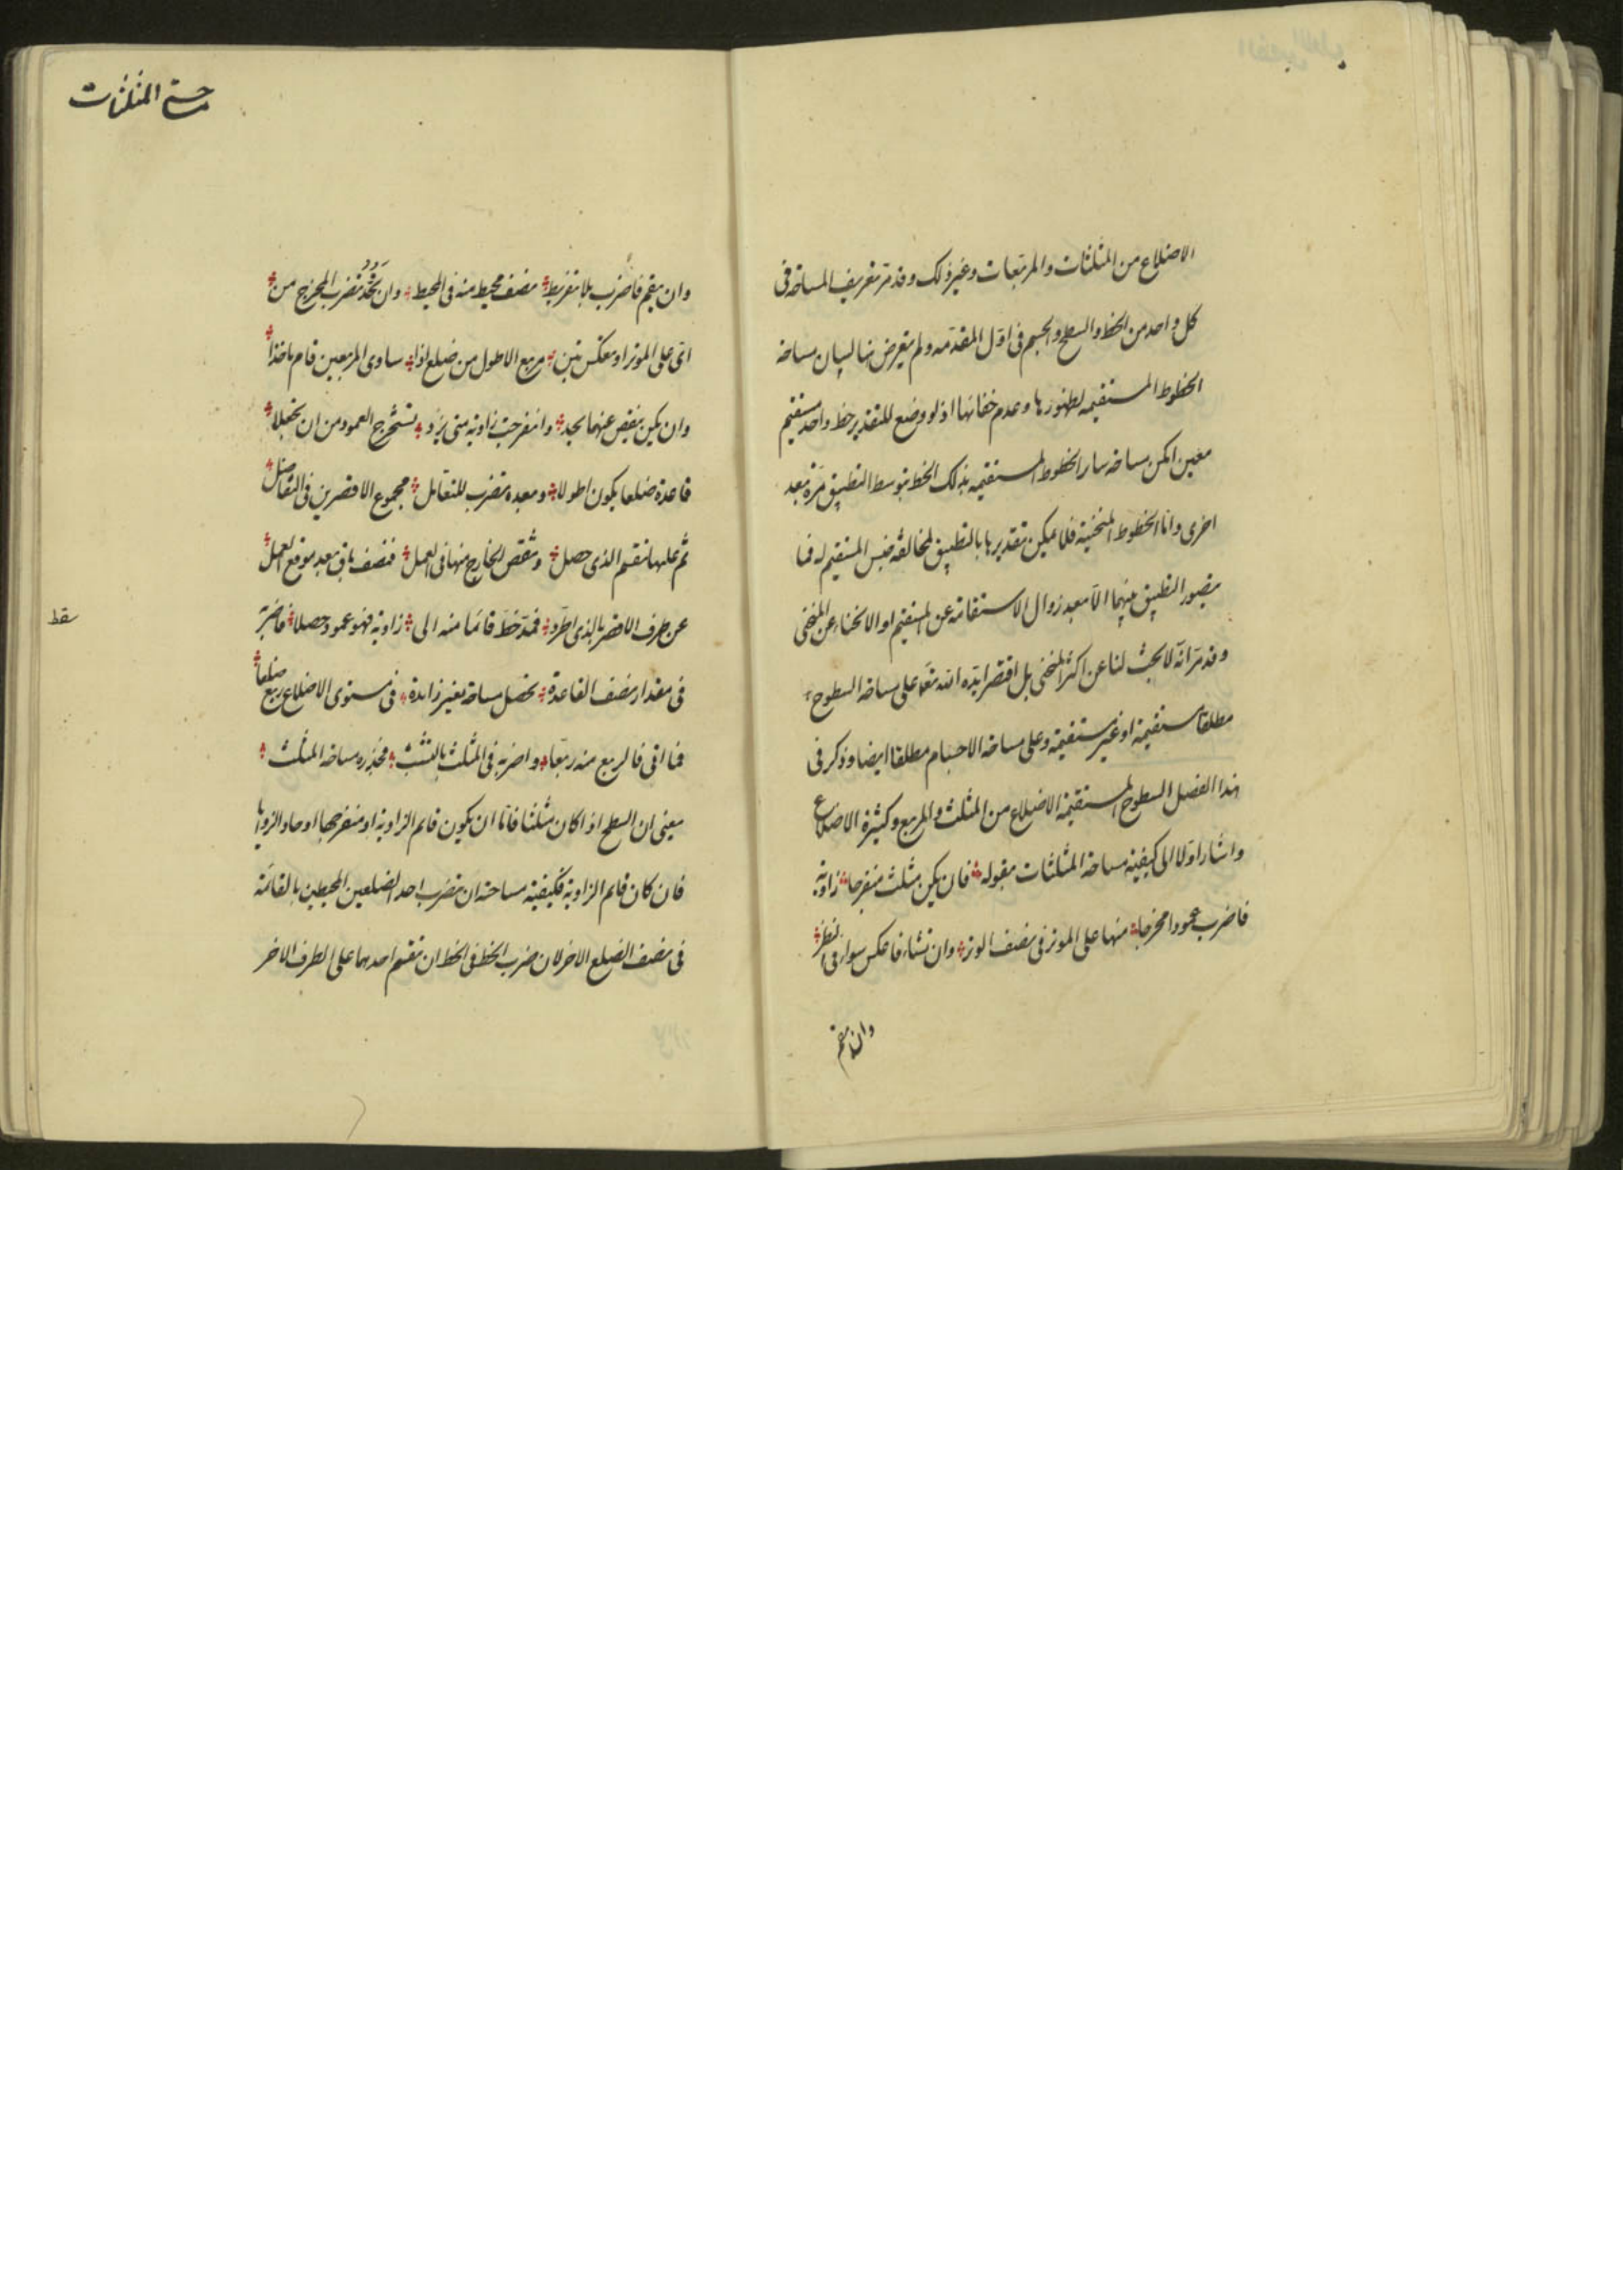 الاضلاع من المثلثات والمربعات وغير ذلك وقد مر تعريف المساحة فى
كل واحد من الخط والسطح والجسم فى اول المقدمه ولم يتعرض ههنا لبيان مساحة
الخطوط المستقيمه لظهورها وعدم خفائها اذ لو وضع للتقدير خط واحد مستقيم
معين امكن مساحة سار الخطوط المستقيمه بذلك الخط بتوسط التطبيق مرة بعد
اخرى واما الخطوط المنحنية فلا يمكن تقديرها بالتطبيق لمخالفة جنس المستقيم له فما
يتصور التطبيق بينهما الا بعد زوال الاستقامة عن المستقيم او الانحناء عن المنحنى
وقد مر انه لا بحث لنا عن اكثر المنحنى بل اقتصر ايده الله تعا على مساحة السطوح
مطلقا مستقيمة او غير مستقيمة وعلى مساحة الاجسام مطلقا ايضا وذكر فى
هذا الفصل السطوح المستقيمة الاضلاع من المثلث والمربع وكثيرة الاضلاع
واشار اولا الى كيفية مساحة المثلثات بقوله فان يكن مثلث منفرجا زاوية
فاضرب عمودا مخرجا منها على الموتر فى نصف الوتر وان تشاء فاعكس سواء فى النظر
وان يقم
مساحة المثلثات
وان يقم فاضرب بلا تفريط نصف محيط منه فى المحيط وان تحد فضرب المخرج من
اى على الموتر او بعكس تبن مربع الاطول من ضلع اذا ساوى المربعين قام ماخذا
وان يكن ينقص عنهما يحد وانفرجت زاوية متى يزد تستخرج العمود من ان تجعلا
قاعدة ضلعا يكون اطولا وبعده تضرب للتعامل مجموع الاقصرين فى التفاضل
ثم عليها تقسم الذى حصل وتنقص الخارج منها فى العمل فنصف باق بعد موقع العمل
عن طرف الاقصر بالذى اطرد فمد خط قائما منه الى زاوية فهو عمود حصلا فاضربه
سقط
فى مقدار نصف القاعدة تحصل مساحة بغير زايدة فى مستوى الاضلاع ربع ضلعا
فما اتى فالربع منه ربعا واضربه فى المثلث بالتثبث فجذره مساحة المثلث
يعنى ان السطح اذا كان مثلثا فاما ان يكون قايم الزاوية او منفرجها او حاد الزوايا
فان كان قايم الزاوية فكيفية مساحته ان تضرب احد الضلعين المحيطين بالقائمة
فى نصف الضلع الاخر لان ضرب الخط فى الخط ان تقسم احدهما على الطرف الاخر